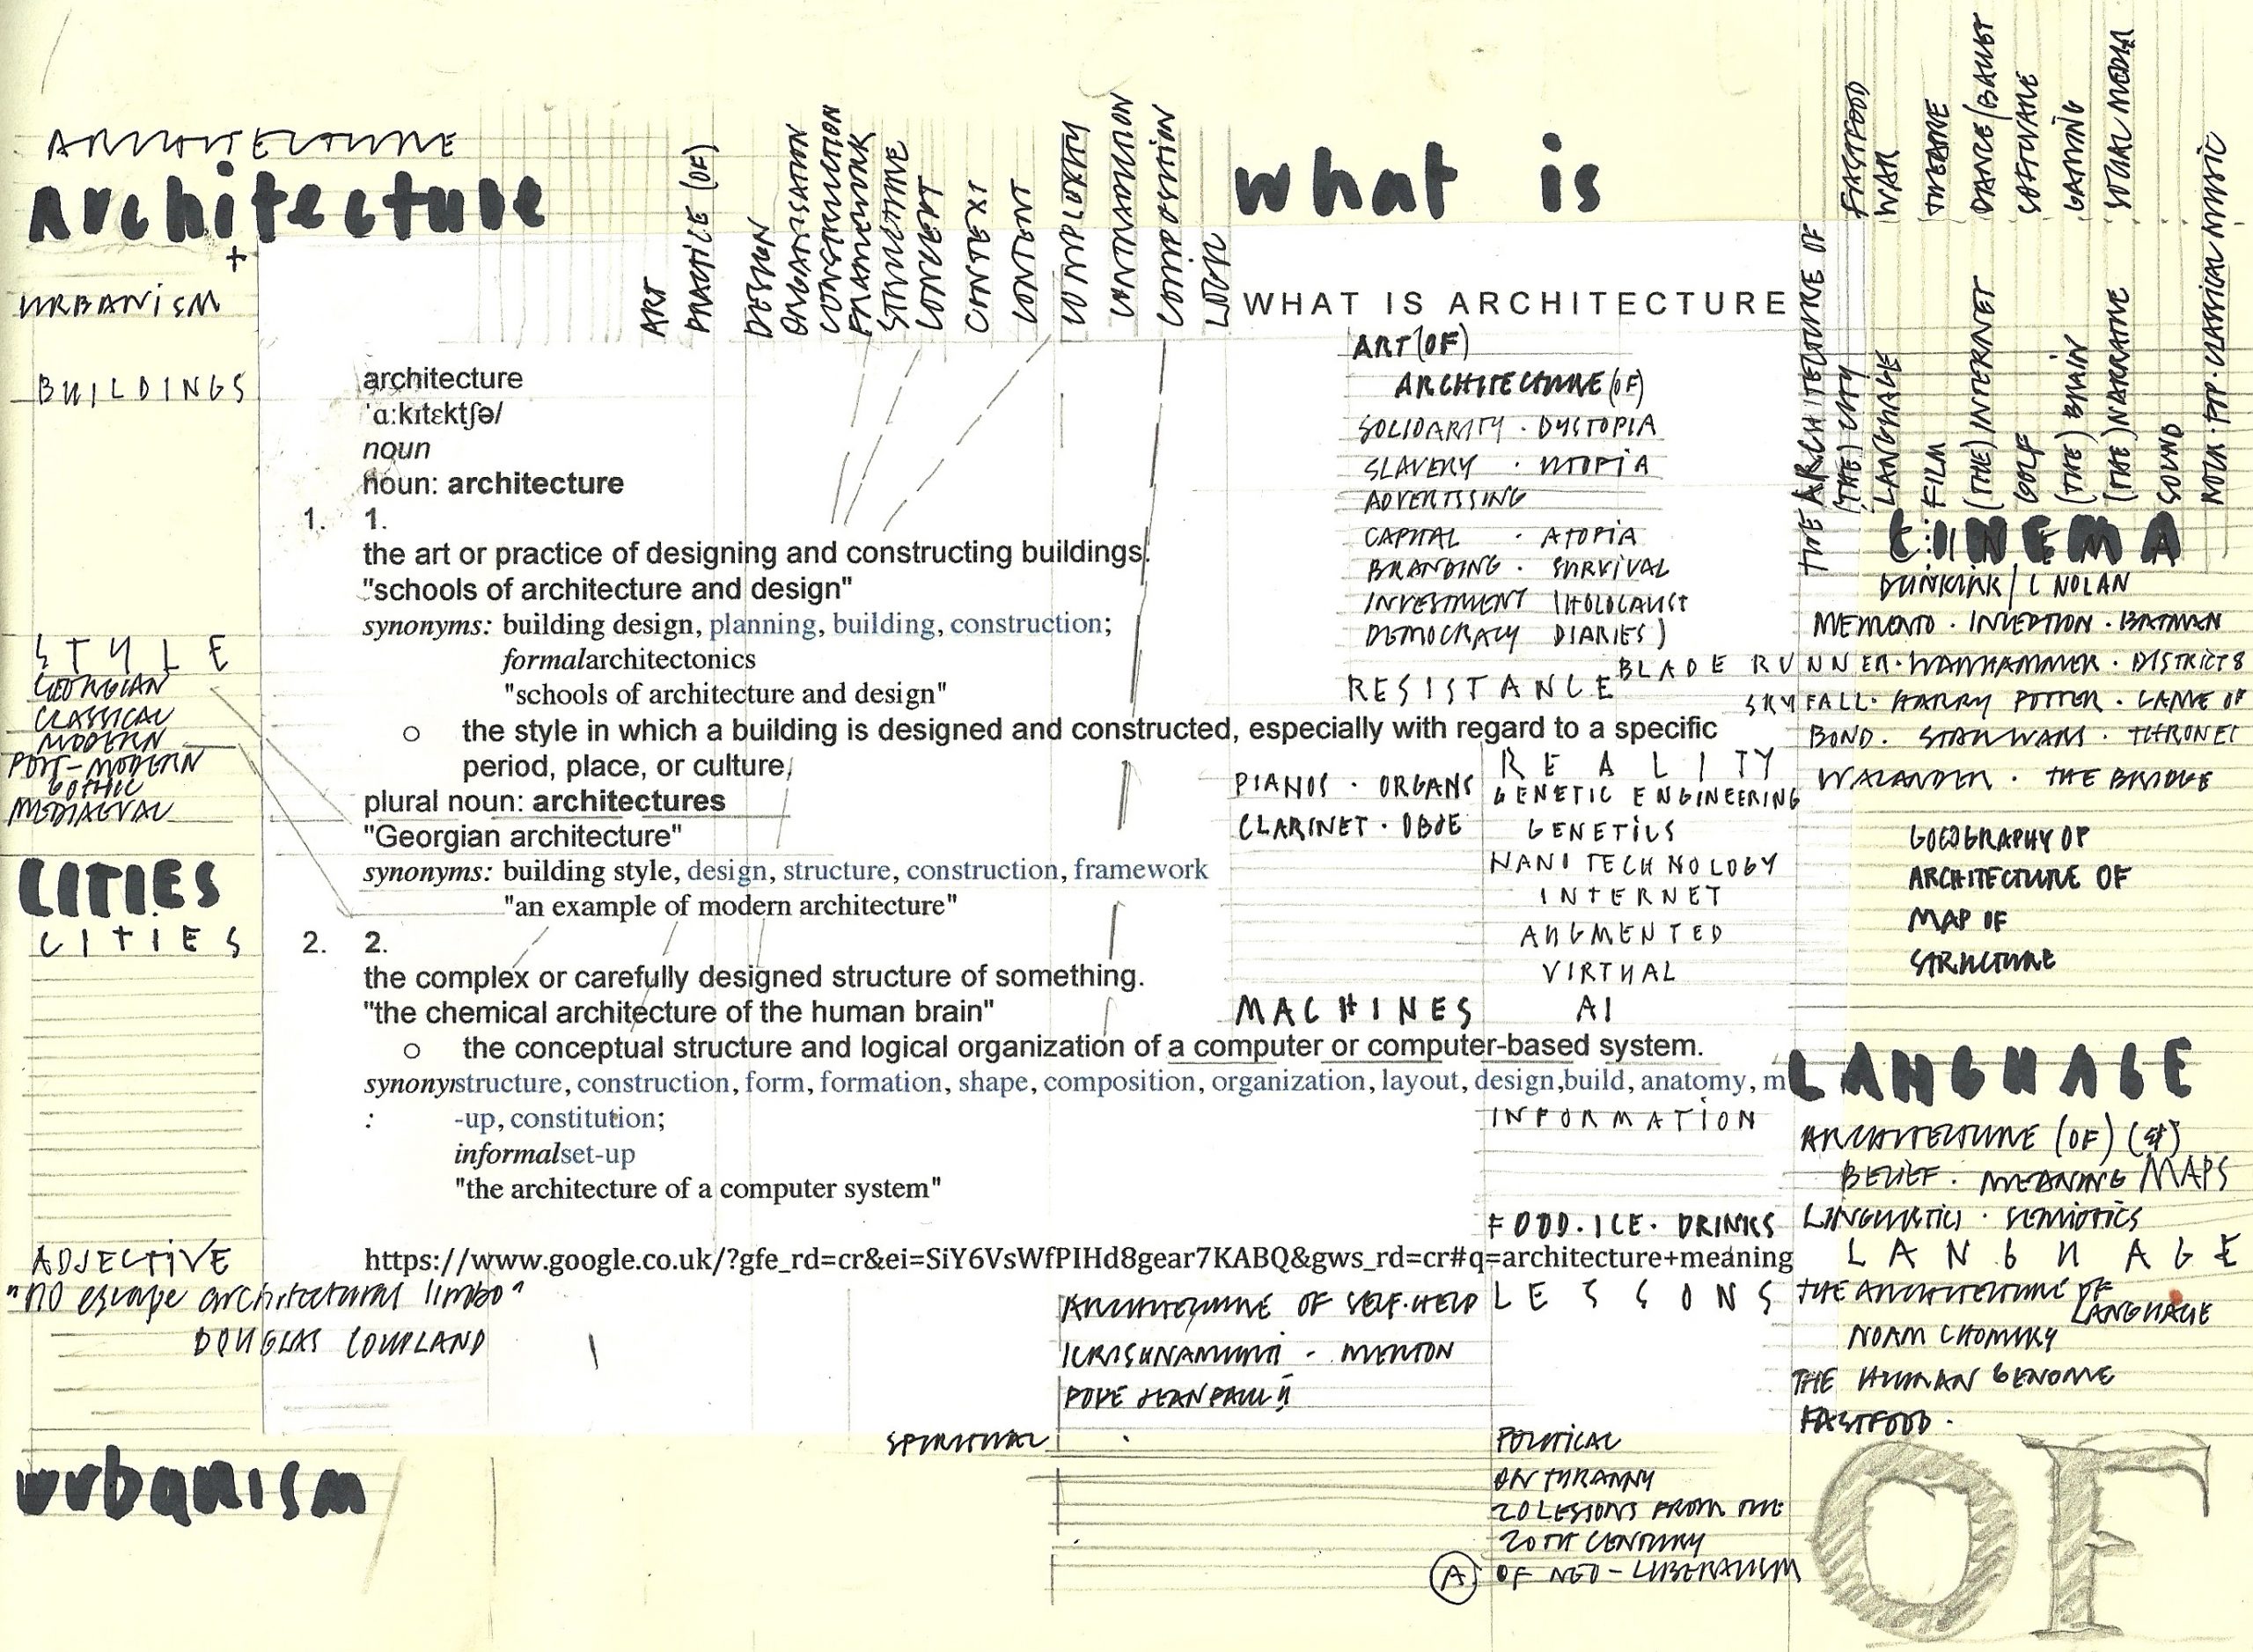 ARCHITECTURE
architecture
+
URBANISM
BUILDINGS
STYLE
GEORGIAN
CLASSICAL
MODERN
POST-MODERN
GOTHIC
MEDIAEVAL
CITIES
CITIES
ADJECTIVE
"no escape architectural limbo"
DOUGLAS COUPLAND
urbanism
ART
PRACTICE (OF)
DESIGN
ORGANISATION
CONSTRUCTION
FRAMEWORK
STRUCTURE
CONCEPT
CONTEXT
CONTENT
COMPLEXITY
CONTRADICTION
COMPOSITION
LOGIC
what is
WHAT IS ARCHITECTURE
architecture
ˈɑːkɪtɛktʃə/
noun
noun: architecture
1. 1.
the art or practice of designing and constructing buildings.
"schools of architecture and design"
synonyms: building design, planning, building, construction;
formalarchitectonics
"schools of architecture and design"
o the style in which a building is designed and constructed, especially with regard to a specific
period, place, or culture,
plural noun: architectures
"Georgian architecture"
synonyms: building style, design, structure, construction, framework
"an example of modern architecture"
2. 2.
the complex or carefully designed structure of something.
"the chemical architecture of the human brain"
o the conceptual structure and logical organization of a computer or computer-based system.
synonyıstructure, construction, form, formation, shape, composition, organization, layout, design,build, anatomy, m
: -up, constitution;
informalset-up
"the architecture of a computer system"
https://www.google.co.uk/?gfe_rd=cr&ei=SiY6VsWfPIHd8gear7KABQ&gws_rd=cr#q=architecture+meaning
ART (OF)
ARCHITECTURE (OF)
SOLIDARITY · DYSTOPIA
SLAVERY · UTOPIA
ADVERTISING
CAPITAL · ATOPIA
BRANDING · SURVIVAL
INVESTMENT (HOLOCAUST
DEMOCRACY DIARIES)
RESISTANCE
PIANOS · ORGANS
CLARINET · OBOE
REALITY
GENETIC ENGINEERING
GENETICS
NANOTECHNOLOGY
INTERNET
AUGMENTED
VIRTUAL
MACHINES AI
INFORMATION
FOOD · ICE · DRINKS
LESSONS
ARCHITECTURE OF SELF-HELP
KRISHNAMURTI - MERTON
POPE JEAN PAUL II
SPIRITUAL
POLITICAL
ON TYRANNY
20 LESSONS FROM THE
20TH CENTURY
(A) OF NEO-LIBERALISM
THE ARCHITECTURE OF
(THE) CITY FASTFOOD
LANGUAGE WAR
FILM THEATRE
(THE) INTERNET DANCE/BALLET
GOLF SOFTWARE
(THE) BRAIN GAMING
(THE) NARRATIVE SOCIAL MEDIA
SOUND
ROCK · POP · CLASSICAL MUSIC
CINEMA
DUNKIRK / C NOLAN
MEMENTO · INCEPTION · BATMAN
BLADE RUNNER · WARHAMMER · DISTRICT 8
SKYFALL · HARRY POTTER · GAME OF
BOND · STAR WARS · THRONES
WALANDER · THE BRIDGE
GEOGRAPHY OF
ARCHITECTURE OF
MAP OF
STRUCTURE
LANGUAGE
ARCHITECTURE (OF) (&)
BELIEF · MEANING MAPS
LINGUISTICS · SEMIOTICS
LANGUAGE
THE ARCHITECTURE OF
LANGUAGE
NOAM CHOMSKY
THE HUMAN GENOME
FASTFOOD ·
OF